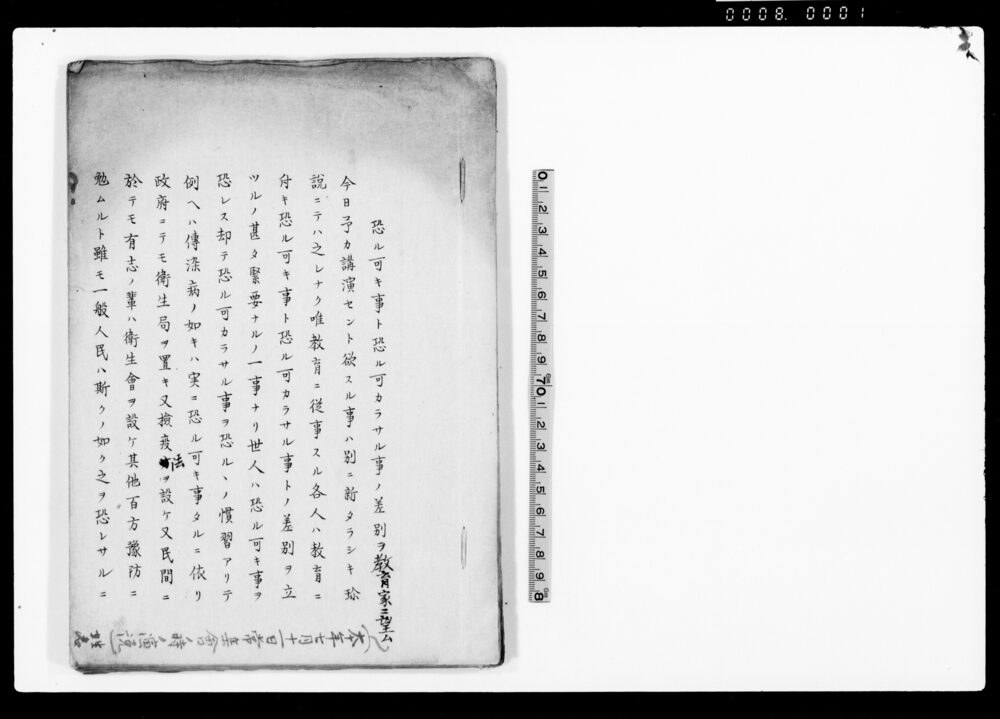 0008. 0001
恐ル可キ事ト恐ル可カラサル事ノ差別ヲ教育家ニ望ム
今日予カ講演セント欲スル事ハ別ニ新タラシキ珍
説ニテハ之レナク唯教育ニ従事スル各人ハ教育ニ
付キ恐ル可キ事ト恐ル可カラサル事トノ差別ヲ立
ツルノ甚タ緊要ナルノ一事ナリ世人ハ恐ル可キ事ヲ
恐レス却テ恐ル可カラサル事ヲ恐ルヽノ慣習アリテ
例ヘハ傳染病ノ如キハ実ニ恐ル可キ事タルニ依リ
政府ニテモ衛生局ヲ置キ又撿疫法ヲ設ケ又民間ニ
於テモ有志ノ輩ハ衛生會ヲ設ケ其他百方豫防ニ
勉ムルト雖モ一般人民ハ斯クノ如ク之ヲ恐レサルニ
(本年七月十一日常集会ノ時ノ演説)
0 1 2 3 4 5 6 7 8 9 10 1 2 3 4 5 6 7 8 9 8